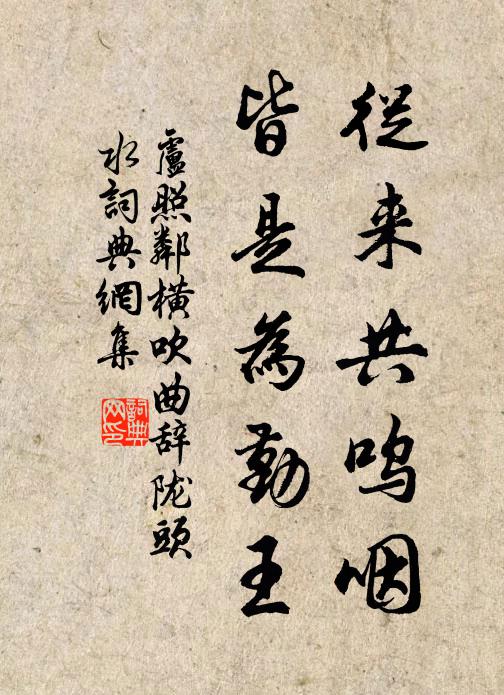 從来共鸣咽
皆是為勤王
盧照鄰橫吹曲辞陇頭
水詞典網集
詞典
网印